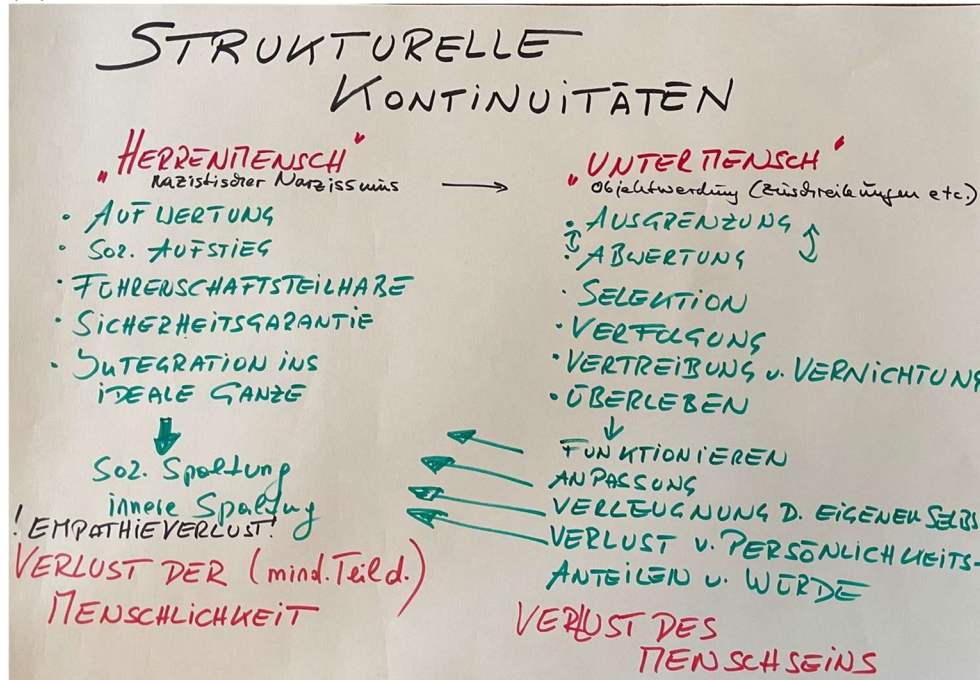 STRUKTURELLE
KONTINUITÄTEN
„HERRENMENSCH"
Nazistischer Narzissmus →
• AUFWERTUNG
• SOZ. AUFSTIEG
• FÜHRERSCHAFTSTEILHABE
• SICHERHEITSGARANTIE
• INTEGRATION INS
IDEALE GANZE
Soz. Spaltung
innere Spaltung
! EMPATHIEVERLUST!
VERLUST DER (mind. Teil d.)
MENSCHLICHKEIT
„UNTERMENSCH"
Objektwerdung (Zuschreibungen etc.)
• AUSGRENZUNG
• ABWERTUNG
• SELEKTION
• VERFOLGUNG
• VERTREIBUNG u. VERNICHTUNG
• ÜBERLEBEN
FUNKTIONIEREN
ANPASSUNG
VERLEUGNUNG D. EIGENEN SELBS
VERLUST v. PERSÖNLICHKEITS-
ANTEILEN u. WÜRDE
VERLUST DES
MENSCHSEINS